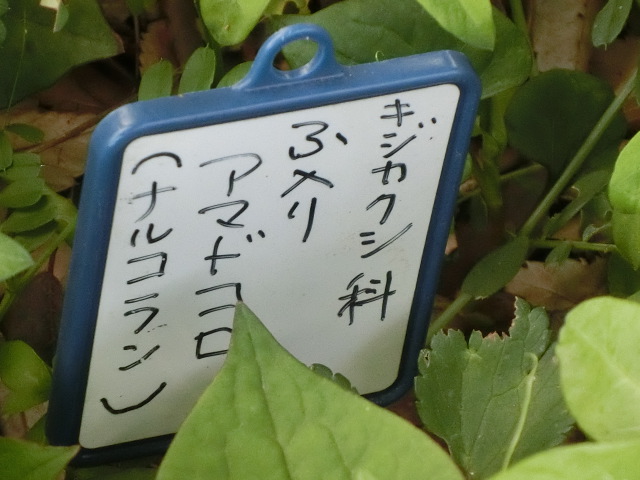 キジカクシ科
ふ入り
アマドコロ
(ナルコラン)